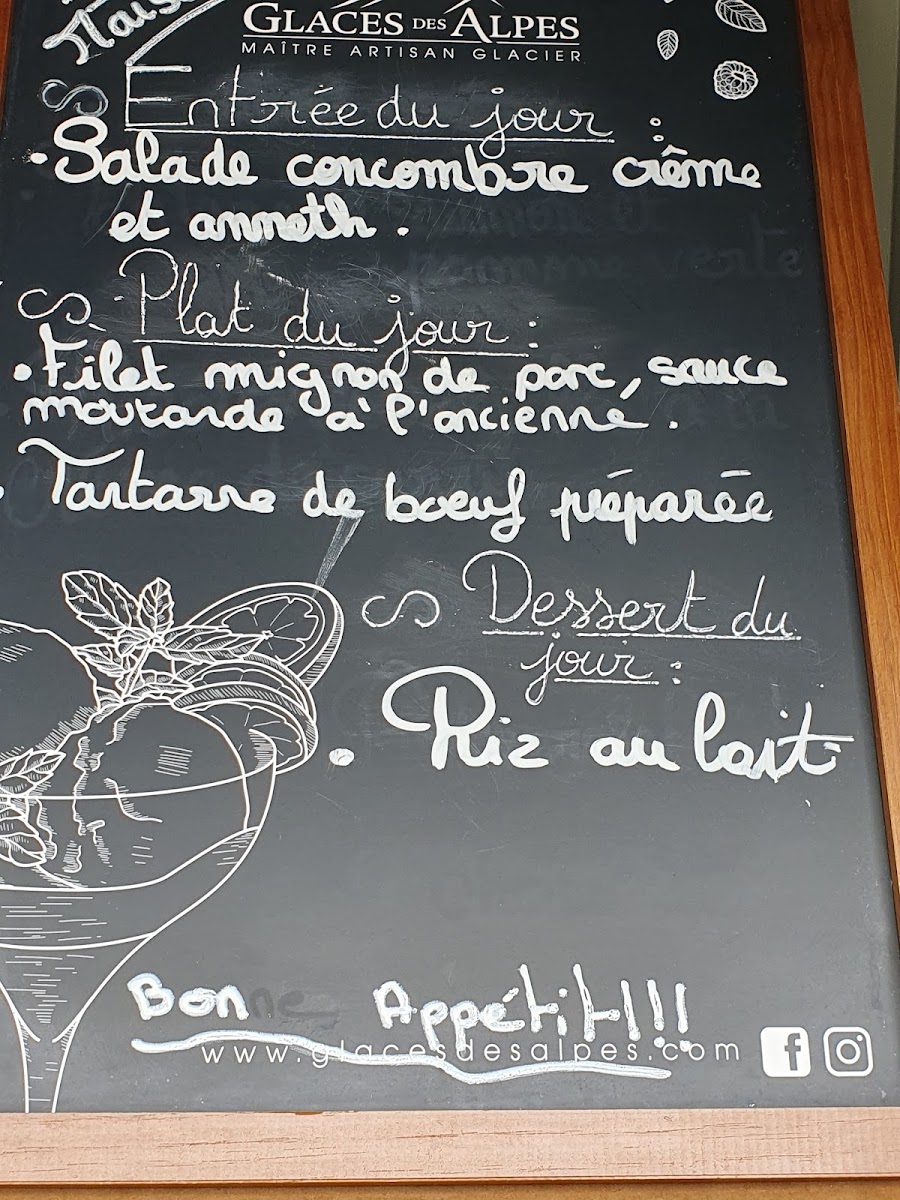 GLACES DES ALPES
MAÎTRE ARTISAN GLACIER
Entrée du jour :
• Salade concombre crême
et anneth.
Plat du jour :
• Filet mignon de porc, sauce
moutarde à l'ancienné.
• Tartarre de boeuf préparée
Dessert du
jour :
• Riz au lait
Bon Appétit!!!
www.glacesdesalpes.com